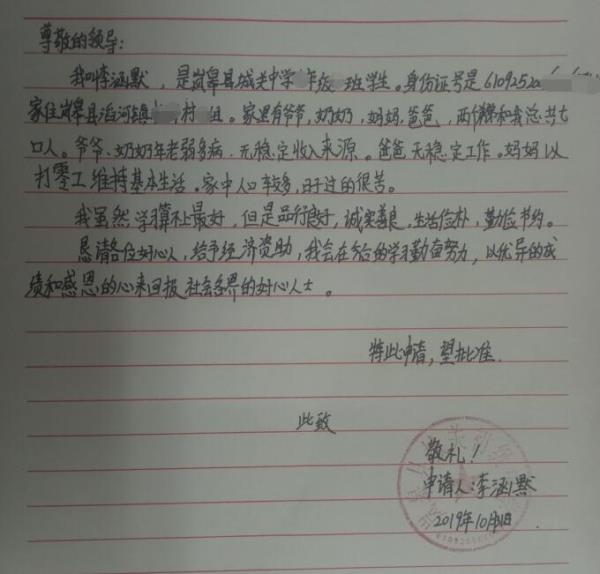 尊敬的领导:
我叫李涵默，是岚皋县城关中学 年级 班学生。身份证号是6109252
家住岚皋县滔河镇 村 组。家里有爷爷,奶奶,妈妈,爸爸,两个 和我总共七
口人。爷爷、奶奶年老弱多病,无稳定收入来源。爸爸无稳定工作。妈妈以
打零工维持基本生活。家中人口较多,日子过的很苦。
我虽然学习算不上最好,但是品行良好,诚实善良,生活俭朴,勤俭节约。
恳请各位好心人,给予经济资助,我会在今后的学习勤奋努力,以优异的成
绩和感恩的心来回报社会各界的好心人士。
特此申请,望批准.
此致
敬礼!
申请人:李涵默
2019年10月 日.